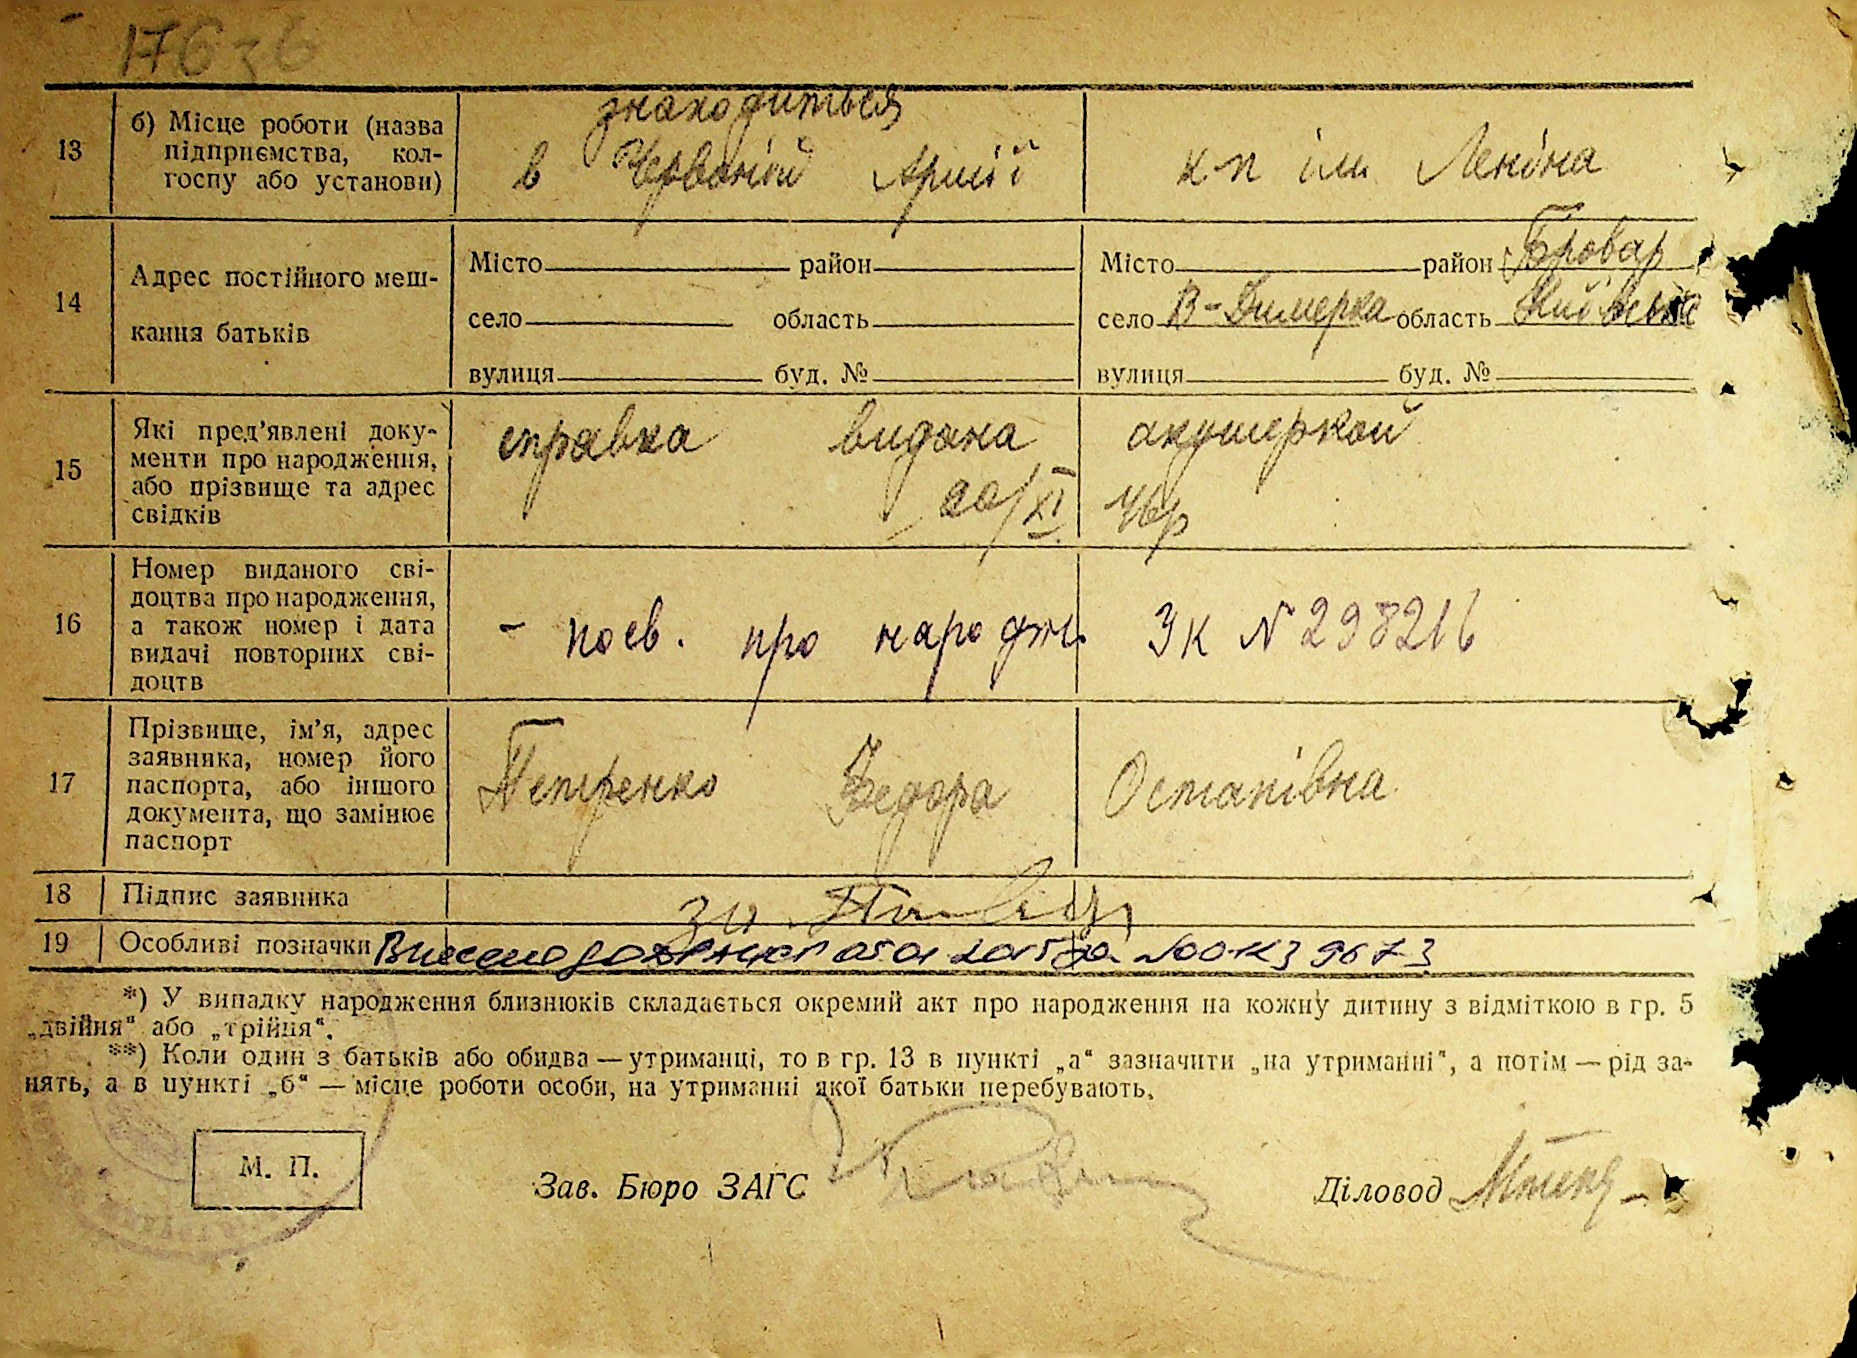 176
13 б) Місце роботи (назва підприємства, кол-
госпу або установи)
знаходиться
в Червоній Армії
к-п ім Леніна
14 Адрес постійного меш-
кання батьків
Місто район
село область
вулиця буд. №
Місто район Бровар
село В-Димерка область Київська
вулиця буд. №
15 Які пред’явлені доку-
менти про народження,
або прізвище та адрес
свідків
справка видана акушеркой
20/XI 46р
16 Номер виданого сві-
доцтва про народження,
а також номер і дата
видачі повторних сві-
доцтв
- посв. про народж. ЗК N 298216
17 Прізвище, ім’я, адрес
заявника, номер його
паспорта, або іншого
документа, що замінює
паспорт
Петренко Федора Остапівна
18 Підпис заявника
19 Особливі позначки
*) У випадку народження близнюків складається окремий акт про народження на кожну дитину з відміткою в гр. 5
„двійня“ або „трійня“.
**) Коли один з батьків або обидва — утриманці, то в гр. 13 в пункті „а“ зазначити „на утриманні“, а потім — рід за-
нять, а в пункті „б“ — місце роботи особи, на утриманні якої батьки перебувають.
М. П.
Зав. Бюро ЗАГС
Діловод